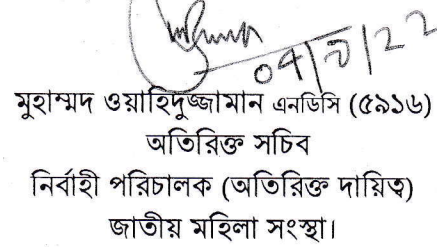 04/8/22
মুহাম্মদ ওয়াহিদুজ্জামান এনডিসি (৫৯১৬)
অতিরিক্ত সচিব
নির্বাহী পরিচালক (অতিরিক্ত দায়িত্ব)
জাতীয় মহিলা সংস্থা।